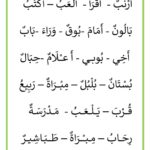 أَرْنَبٌ – اَقْرَأُ – أَلْعَبُ – اَكْتُبُ
بَالُونٌ – أَمَامَ – بُوقٌ – وَرَاءَ – بَابٌ
أَخِي – بُوبِي – أَعْـلَامٌ – جِبَالٌ
بُسْتَانٌ – بُلْبُلٌ – مِبْرَاةٌ – رَبِيعٌ
قُـرْبَ – يَـلْـعَـبُ – مَـدْرَسَـةٌ
رِحَـابُ – مِبْـرَاةٌ – طَـبَـاشِـيـرُ